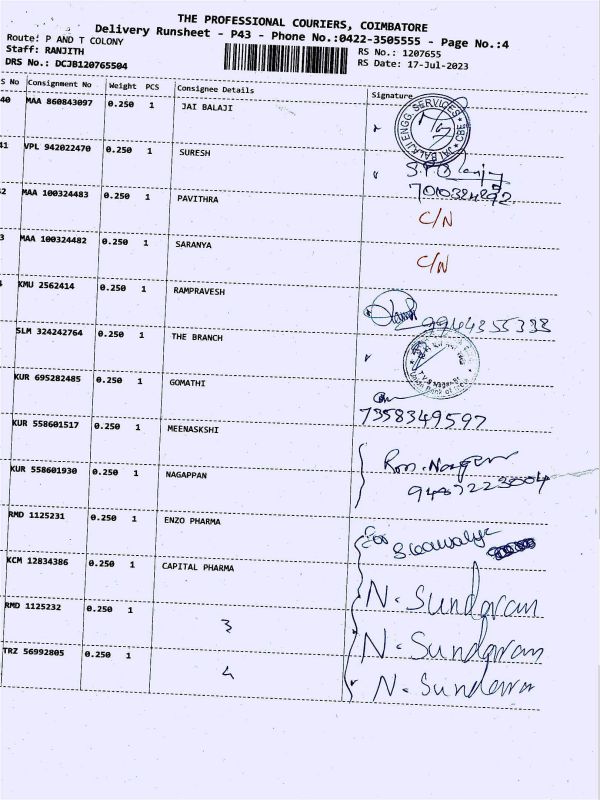 THE PROFESSIONAL COURIERS, COIMBATORE
Delivery Runsheet - P43 - Phone No.:0422-3505555 - Page No.:4
Route: P AND T COLONY
Staff: RANJITH
DRS No.: DCJB120765504
RS No.: 1207655
RS Date: 17-Jul-2023
S No Consignment No Weight PCS Consignee Details Signature
40 MAA 860843097 0.250 1 JAI BALAJI
JAI BALAJI ENGG. SERVICES CBE
41 VPL 942022470 0.250 1 SURESH
2 MAA 100324483 0.250 1 PAVITHRA C/N
3 MAA 100324482 0.250 1 SARANYA C/N
KMU 2562414 0.250 1 RAMPRAVESH 9944355338
SLM 324242764 0.250 1 THE BRANCH
KUR 695282485 0.250 1 GOMATHI 7358349597
KUR 558601517 0.250 1 MEENASKSHI
KUR 558601930 0.250 1 NAGAPPAN
RMD 1125231 0.250 1 ENZO PHARMA For
KCM 12834386 0.250 1 CAPITAL PHARMA N. Sundaram
RMD 1125232 0.250 1 3 N. Sundaram
TRZ 56992805 0.250 1 4 N. Sundaram